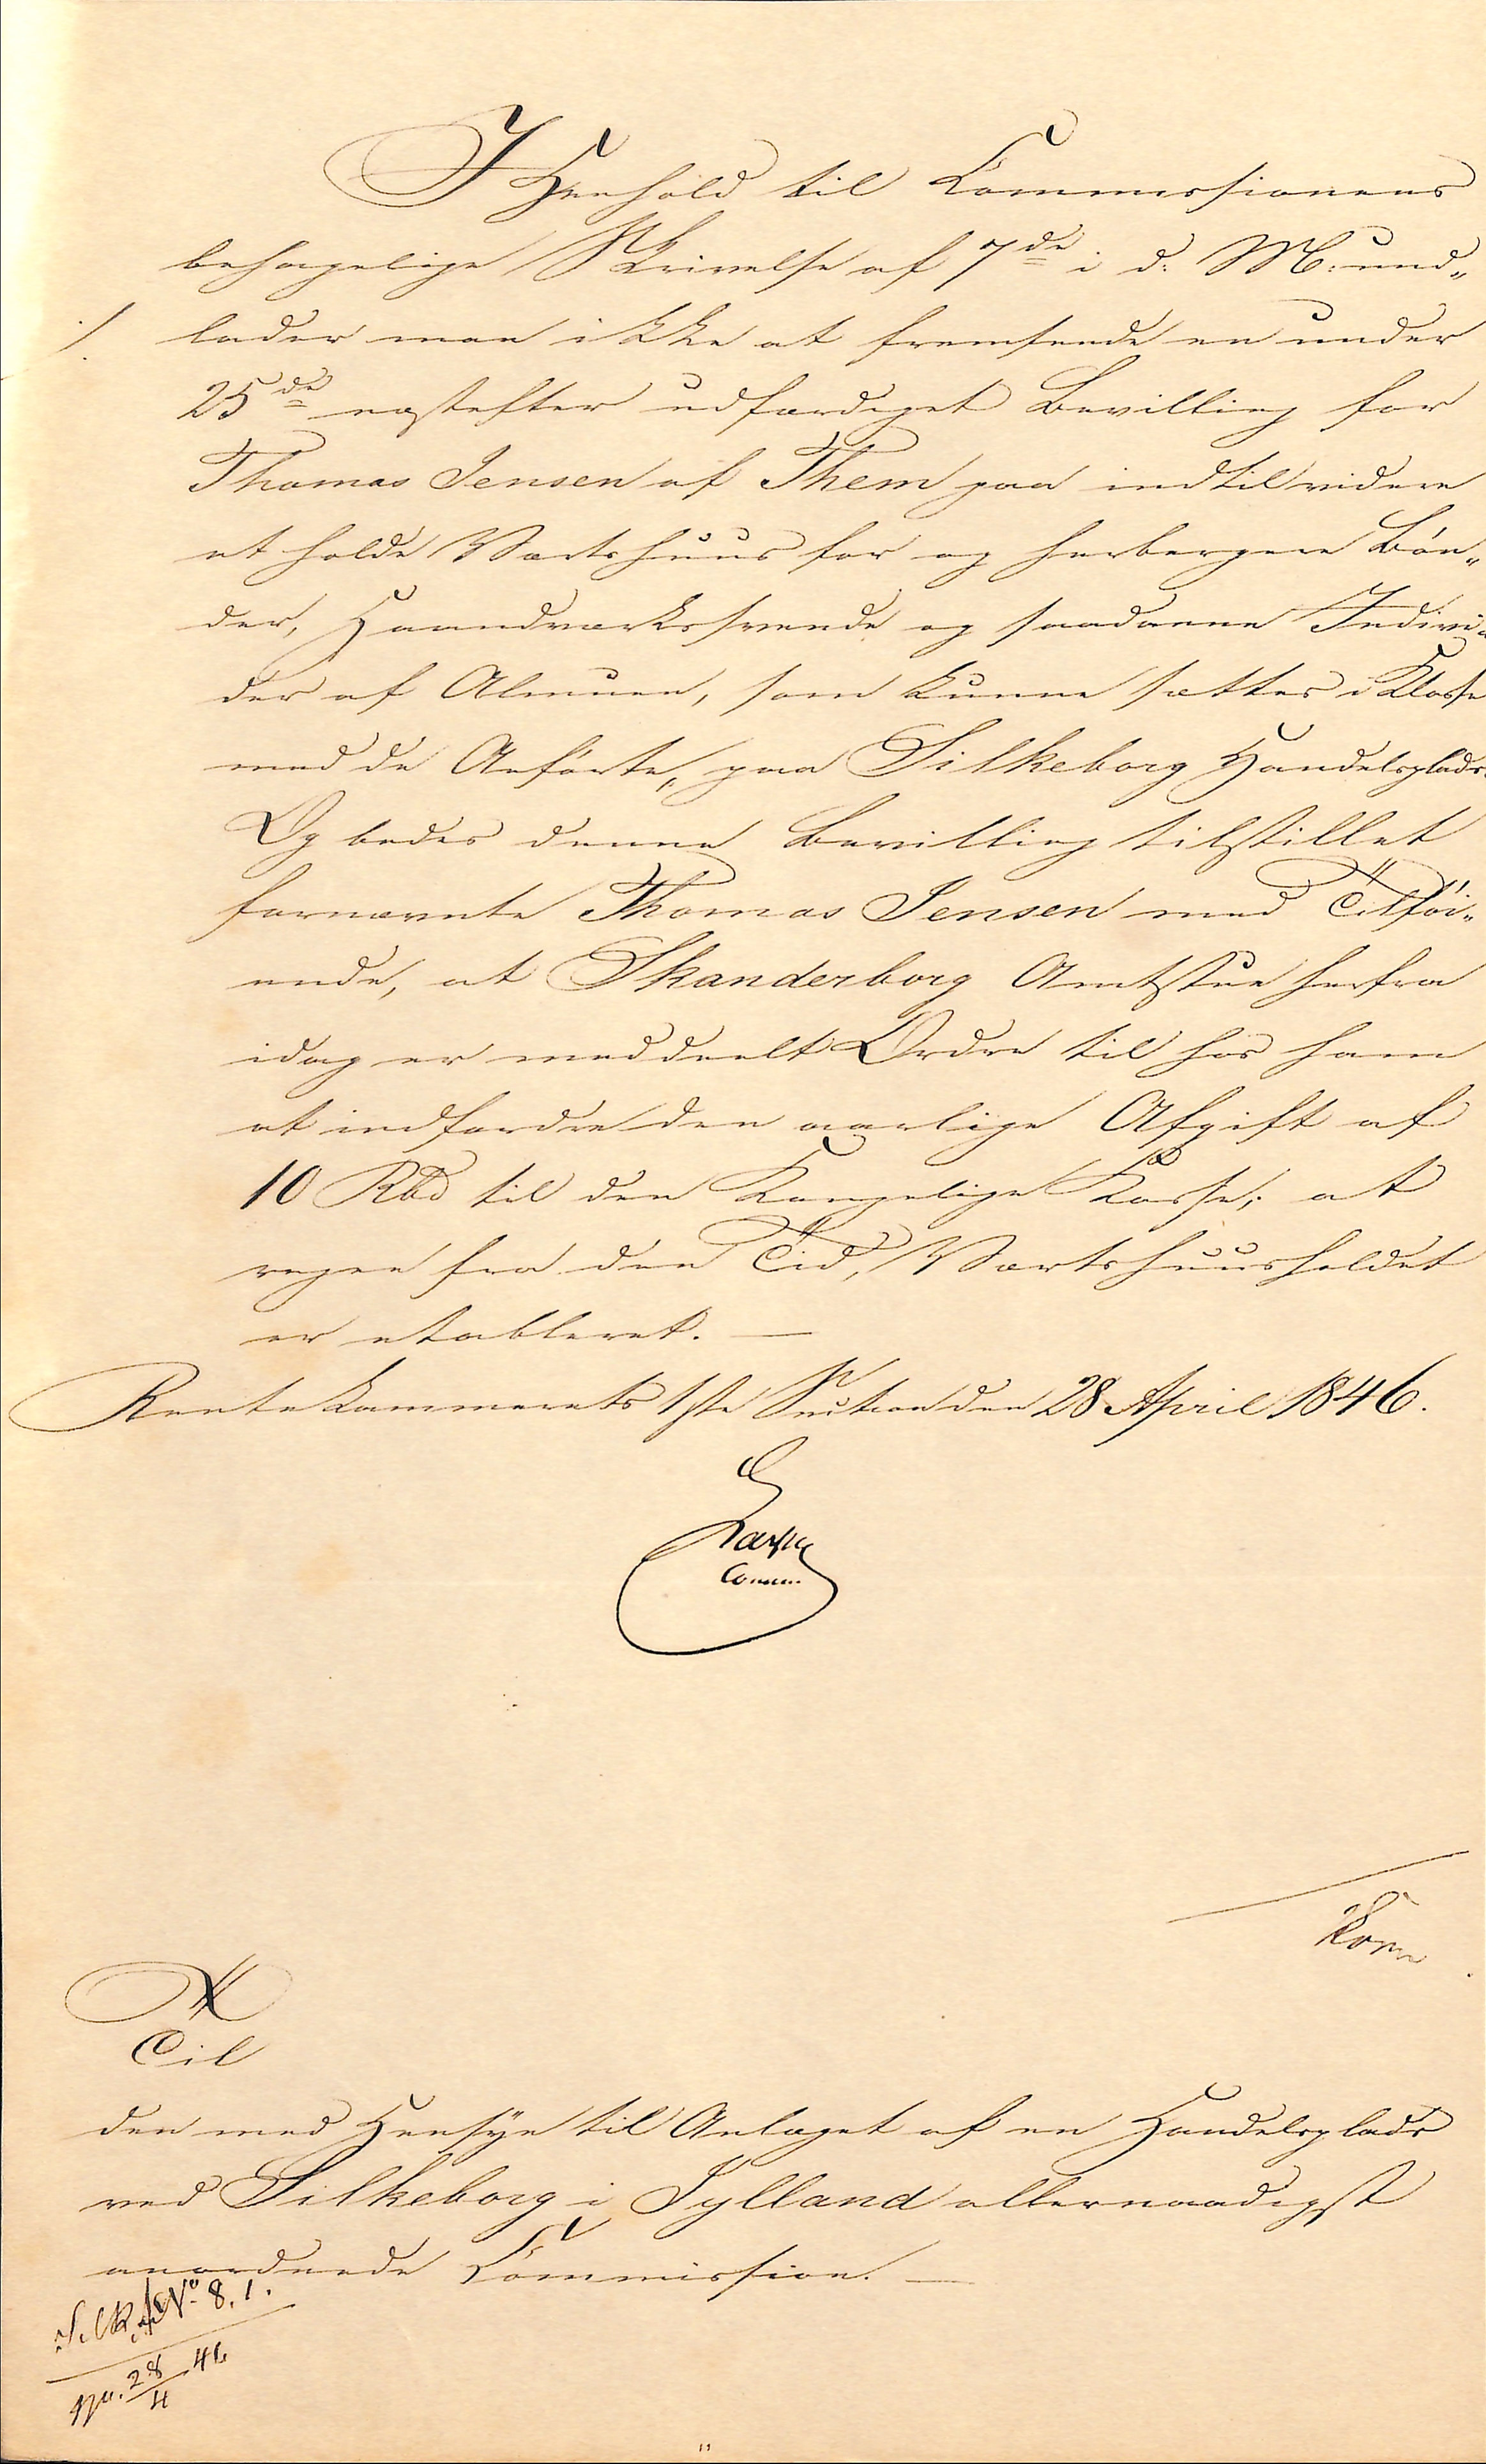 I Henhold til Commissionens
behagelige Skrivelse af 7de i d: M: und„
./. lader man ikke at fremsende en under
25de næstefter udfærdiget Bevilling for
Thomas Jensen af Them paa indtil videre
at holde Værtshuus for og herbergere Bön„
der, Haandværkssvende og saadanne Indivi„
der af Almuen, som kunne sættes i Klasse
med de Anförte, paa Silkeborg Handelsplads.
Og bedes denne Bevilling tilstillet
fornævnte Thomas Jensen med Tilföi„
ende, at Skanderborg Amtstue herfra
idag er meddeelt Ordre til hos ham
at indfordre den aarlige Afgift af
10 Rbd til den Kongelige Kasse, at
regne fra den Tid, Værtshuusholdet
er etableret. —
Rentekammerets 1ste Section den 28 April 1846.
Til
den med Hensyn til Anlæget af en Handelsplads
ved Silkeborg i Jylland allernaadigst
anordnede Commission. —
No 8.1.
28/4 46